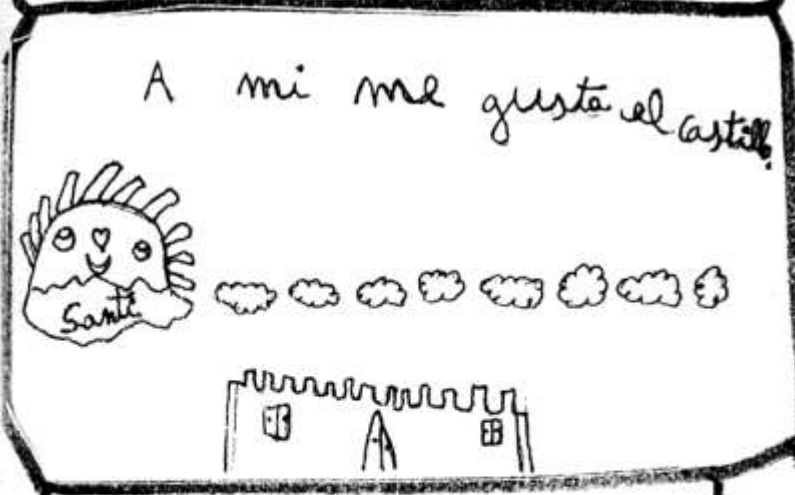 A mi me gusta el castillo.
Santi